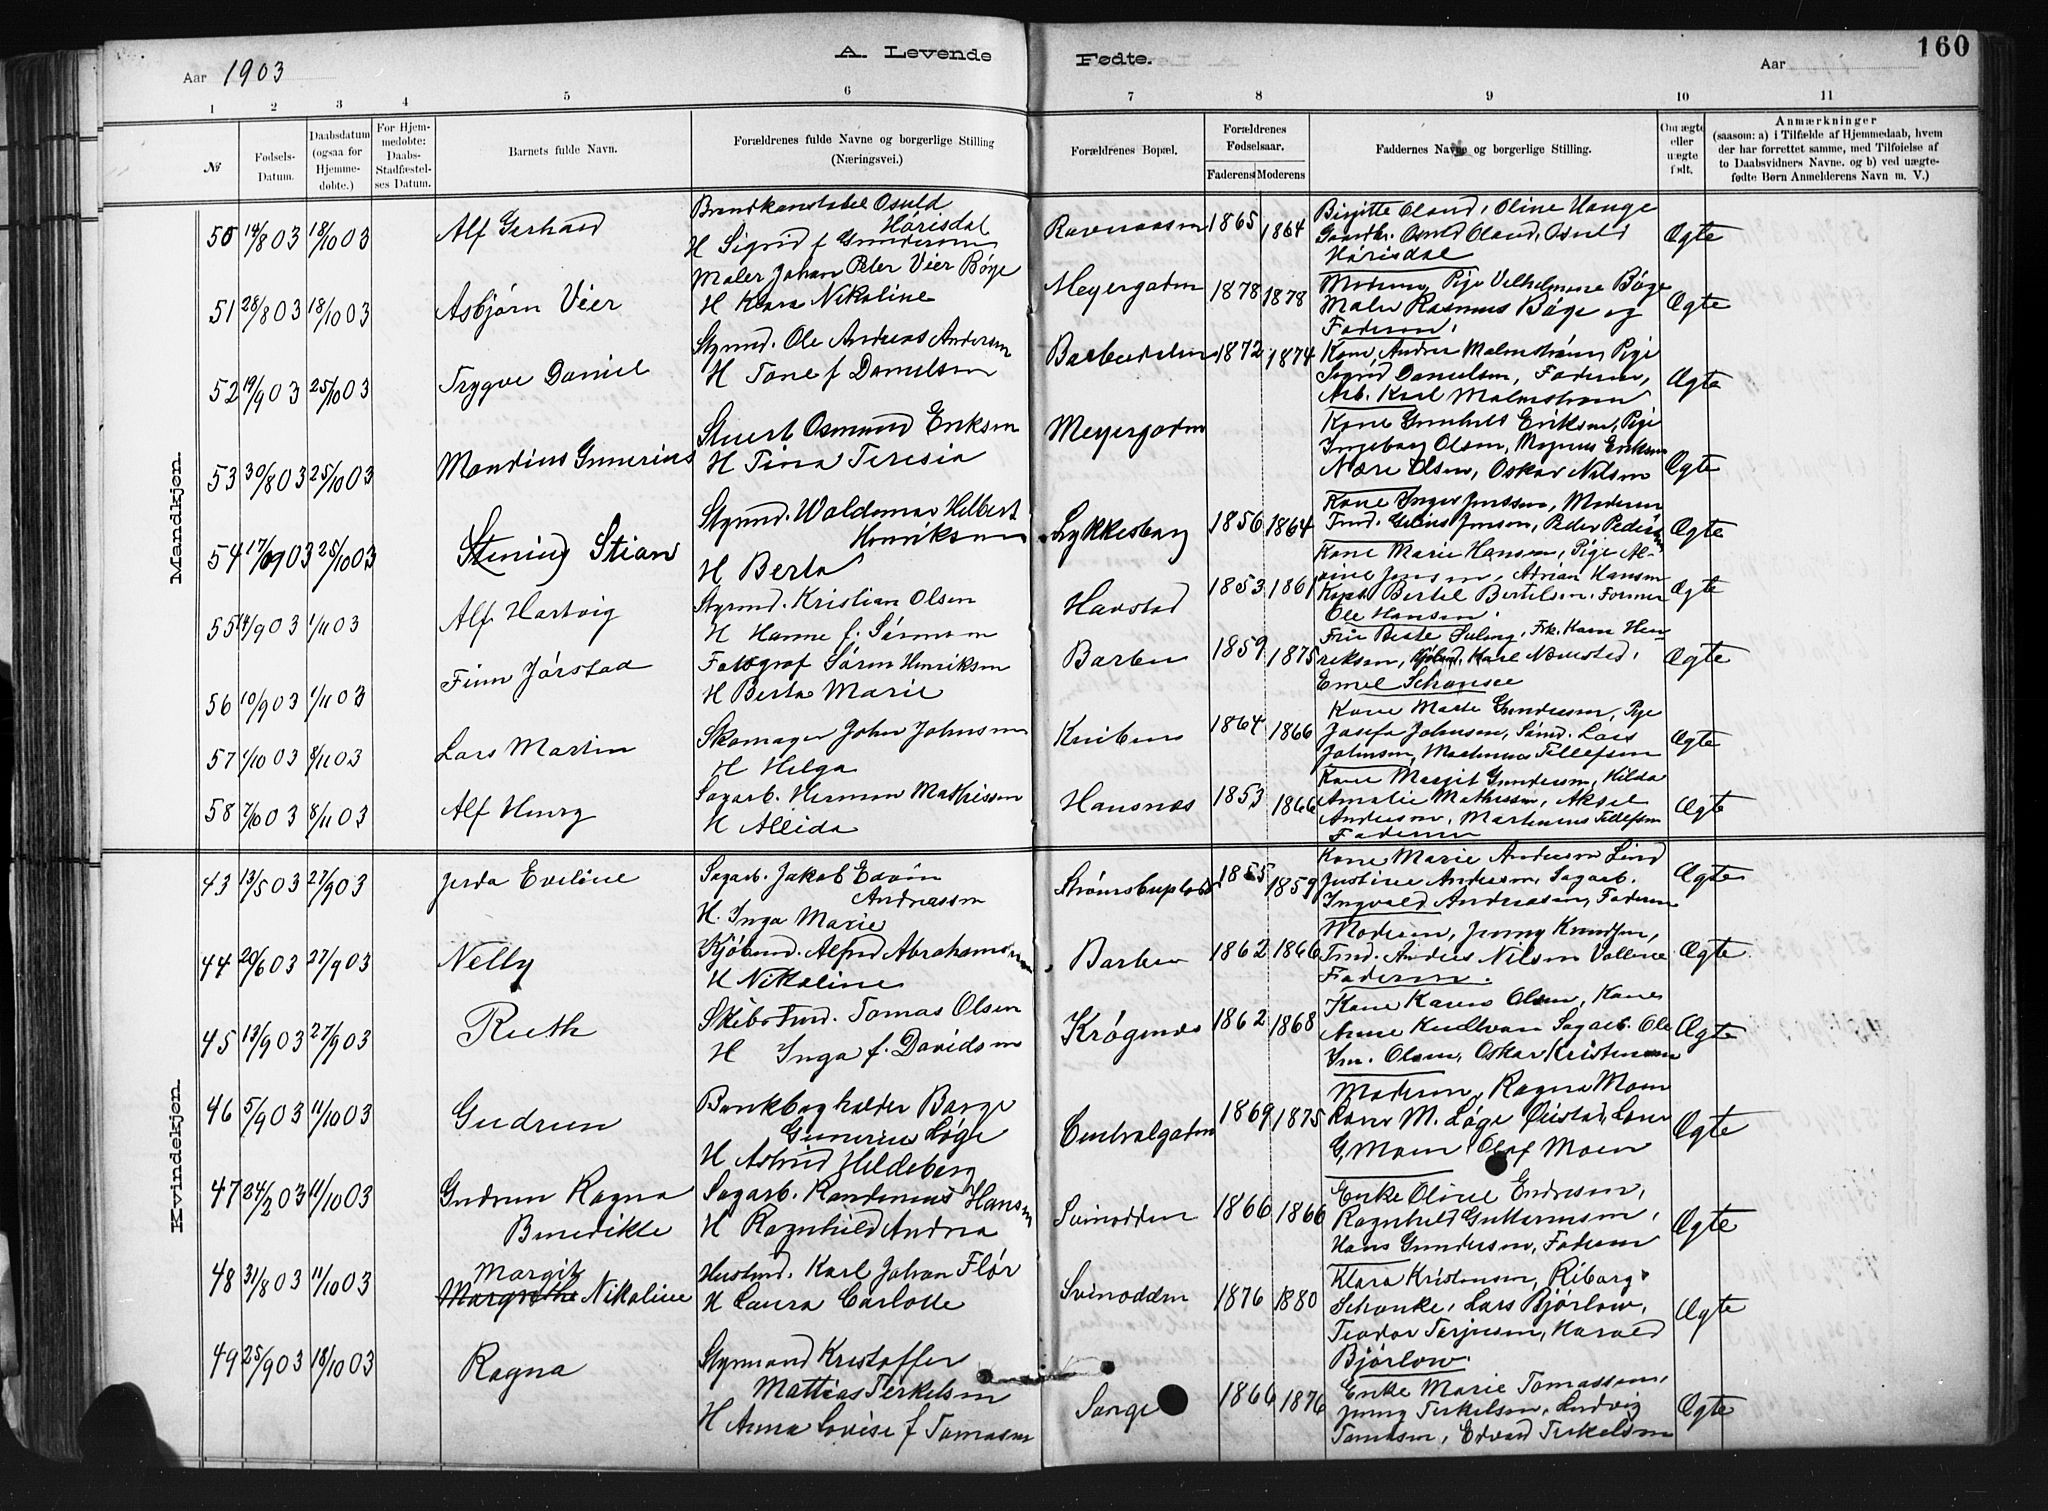 A. Levende Fødte.
160
Aar 1903
Aar
1 2 3 4 5 6 7 8 9 10 11
№
Fødsels-Datum.
Daabsdatum (ogsaa for Hjemme-døbte.)
For Hjem-medøbte: Daabs-Stadfæstel-ses Datum.
Barnets fulde Navn.
Forældrenes fulde Navne og borgerlige Stilling (Næringsvei.)
Forældrenes Bopæl.
Forældrenes Fødselsaar.
Faderens Moderens
Faddernes Navne og borgerlige Stilling.
Om ægte eller uægte født.
Anmærkninger
(saasom: a) i Tilfælde af Hjemmedaab, hvem
der har forrettet samme, med Tilføielse af
to Daabsvidners Navne. og b) ved uægte-
fødte Børn Anmelderens Navn m. V.)
Mandkjøn.
50 14/8 03 18/10 03 Alf Gerhard
Brandkonstabel Osuld
Hørisdal
H Sigrid f Gundersen
1865 1864
Birgitte Oland, Oline Hauge
Osuld Oland, Osuld
Hørisdal
Ægte
51 28/8 03 18/10 03 Asbjørn Vier
Maler Johan Peter Vier Bøge
H Klara Nikoline
Meyergaden 1878 1878
Moderen, Pige Vilhelmine Bøge
Maler Rasmus Bøge og
Faderen.
Ægte
52 19/9 03 25/10 03 Trygve Daniel
Styrmd. Ole Andreas Andersen
H Tone f Danielsen
1872 1874
Kone Andrea Malmstrøm, Pige
Sigrid Danielsen, Faderen,
Arb. Karl Malmstrøm
Ægte
53 30/8 03 25/10 03 Mandius Gunerius
Stuert Osmund Eriksen
H Tina Teresia
Meyergaden
Kone Gunhild Eriksen, Pige
Ingeborg Olsen, Magnus Eriksen
Olsen, Oskar Nilsen
Ægte
54 17/9 03 25/10 03 Stian
Styrmd. Waldemar Helbert
Henriksen
H Berta
Lykkesborg 1856 1864
Kone Inger Jenssen, Moderen
Tmd. Jensen, Peder Pedersen
Ægte
55 14/9 03 1/11 03 Alf Hartvig
Styrmd. Kristian Olsen
H Hanne f. Sørensen
Havstad 1853 1861
Kone Marie Hansen, Pige Al-
vine Jensen, Adrian Hansen
Kapt. Bertel Bertelsen, Former
Ole Hansen.
Ægte
56 10/9 03 1/11 03 Finn Jørstad
Fotograf Søren Henriksen
H Berta Marie
Barbu 1859 1875
Frk. Kara Hen-
riksen, Karl Næmsted,
Emil Schanche
Ægte
57 1/10 03 8/11 03 Lars Martin
Skomager John Johnsen
H Helga
1864 1866
Kone Marte Gundersen, Pige
Josefa Johnsen, Sømd. Lars
Johnsen, Martinus Tellefsen
Ægte
58 7/10 03 8/11 03 Alf Henry
Sagarb. Herman Mathissen
H Allida
Hansnæs 1853 1866
Kone Margit Gundersen, Hilda
Amalie Mathissen, Aksel
Andersen, Martinius Tellefsen
Faderen
Ægte
Kvindekjøn.
43 13/5 03 27/9 03 Jerda Eveline
Sagarb. Jakob Edvin
Andreassen
H. Inga Marie
1855 1859
Kone Marie Andersen Lind
Justine Andersen, Sagarb.
Ingvald Andreasen, Faderen
Ægte
44 20/6 03 27/9 03 Nelly
Kjøbmd. Alfred Abrahamsen
H Nikoline
Barbu 1862 1866
Moderen, Jenny Knudsen,
Tmd. Andreas Nilsen Vollene
Faderen.
Ægte
45 13/9 03 27/9 03 Ruth
Skibstmd. Tomas Olsen
H Inga f. Davidsen
Krøgenæs 1862 1868
Kone Karen Olsen, Kone
Anne Sagarb. Ole
Olsen, Oskar Kristensen
Ægte
46 5/9 03 11/10 03 Gudrun
Bankbogholder Børge
Gunerius Løge
H Astrid Hildeborg
Centralgaden 1869 1875
Moderen, Ragna Moen
M. Løge
G, Moen, Olaf Moen
Ægte
47 24/2 03 11/10 03 Gudrun Ragna
Benedikte
Sagarb. Randinius Hansen
H Ragnhild Andrea
Svinodden 1866 1866
Enke Oline Endresen,
Ragnhild Guttormsen,
Hans Gundersen, Faderen
Ægte
48 31/8 03 11/10 03 Margit
Margrethe Nikoline
Karl Johan Flør
H Laura Carlotte
Svinodden 1876 1880
Klara Kristensen, Riborg
Schanke, Lars Bjørlow,
Teodor Terjesen, Harald
Bjørlow.
Ægte
49 25/9 03 18/10 03 Ragna
Styrmand Kristoffer
Mattias Terkelsen
H Anna Lovise f Tomasen
Songe 1866 1876
Enke Marie Tomassen,
Jenny Terkelsen, Ludvig
Tomasen, Edvard Terkelsen
Ægte